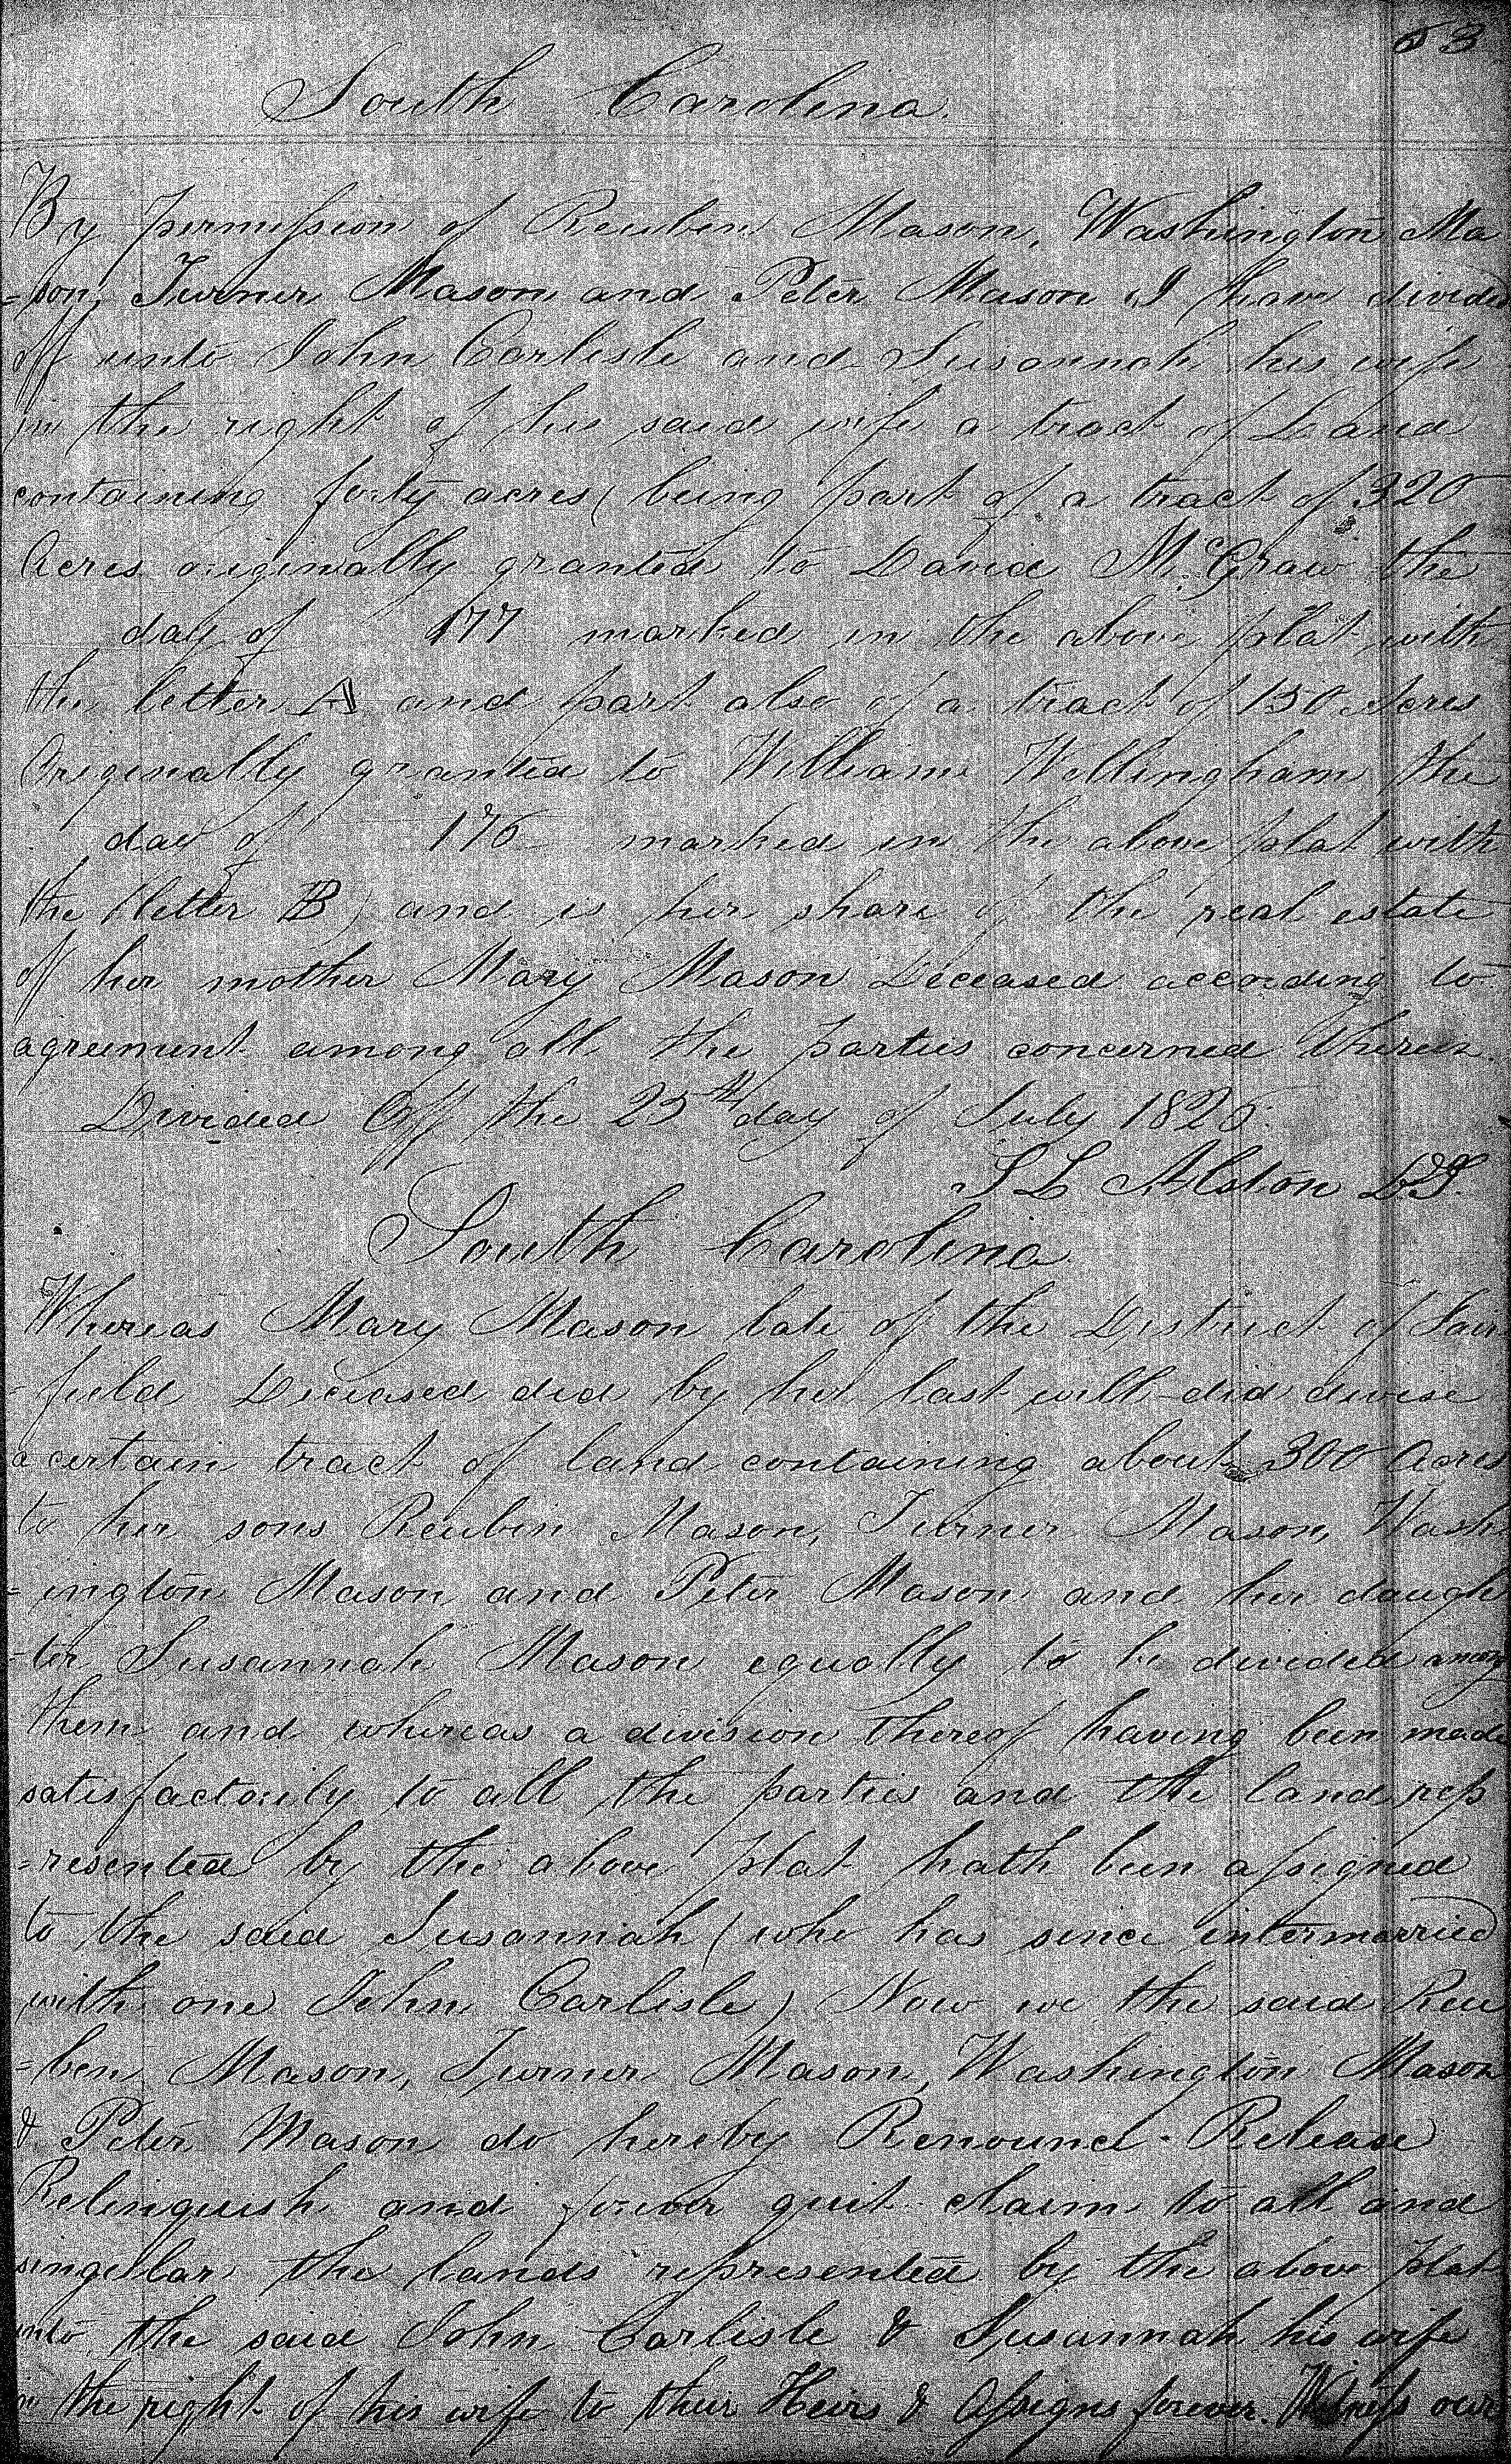 53
South Carolina.
By permission of Reuben Mason, Washington Ma
=son, Turner Mason and Peter Mason, I have divided
off unto John Carlisle and Susannah his wife
in the right of his said wife a tract of Land
containing forty acres (being part of a tract of 320
Acres originally granted to David McGraw the
day of 177 marked in the above plat with
the letter A and part also of a tract of 150 Acres
Originally granted to William Wellingham the
day of 175 marked in the above plat with
the letter B) and is her share of the real estate
of her mother Mary Mason Deceased according to
agreement among all the parties concerned therein.
Divided Off the 25th day of July 1825.
S L Alston DS.
South Carolina
Whereas Mary Mason late of the District of Fair
=field Deceased did by her last will did devise
a certain tract of land containing about 300 Acres
to her sons Reubin Mason, Turner Mason, Wash
=ington Mason and Peter Mason and her daugh
=ter Susannah Mason equally to be divided among
them and whereas a division thereof having been made
satisfactorily to all the parties and the land rep
=resented by the above plat hath been assigned
to the said Susannah (who has since intermarried
with one John Carlisle) Now we the said Reu
=ben Mason, Turner Mason, Washington Mason
& Peter Mason do hereby Renounce. Release
Relinquish and forever quit claim to all and
singular the lands represented by the above plat
unto the said John Carlisle & Susannah his wife
in the right of his wife to their Heirs & Assigns forever. Witness our